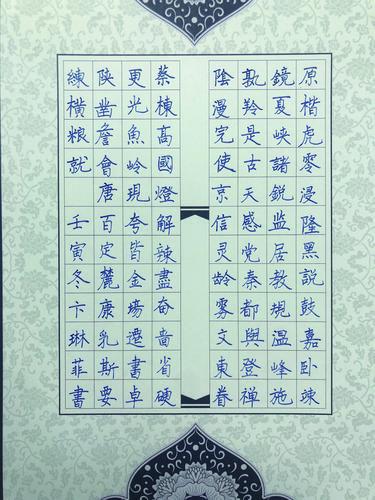 原楷虎零浸隆黑説鼓嘉卧竦
鏡夏峽諸鋭监居教規温峰施
孰羚是古天感党秦都與登禅
陰漫完使京信灵龄雾文東眷
蔡棟高國燈解辣盡奋啬省硬
更光魚岭現夸皆金場遷書卓
陝凿詹會唐百定麓康乳斯要
練横粮就 壬寅冬卞琳菲書